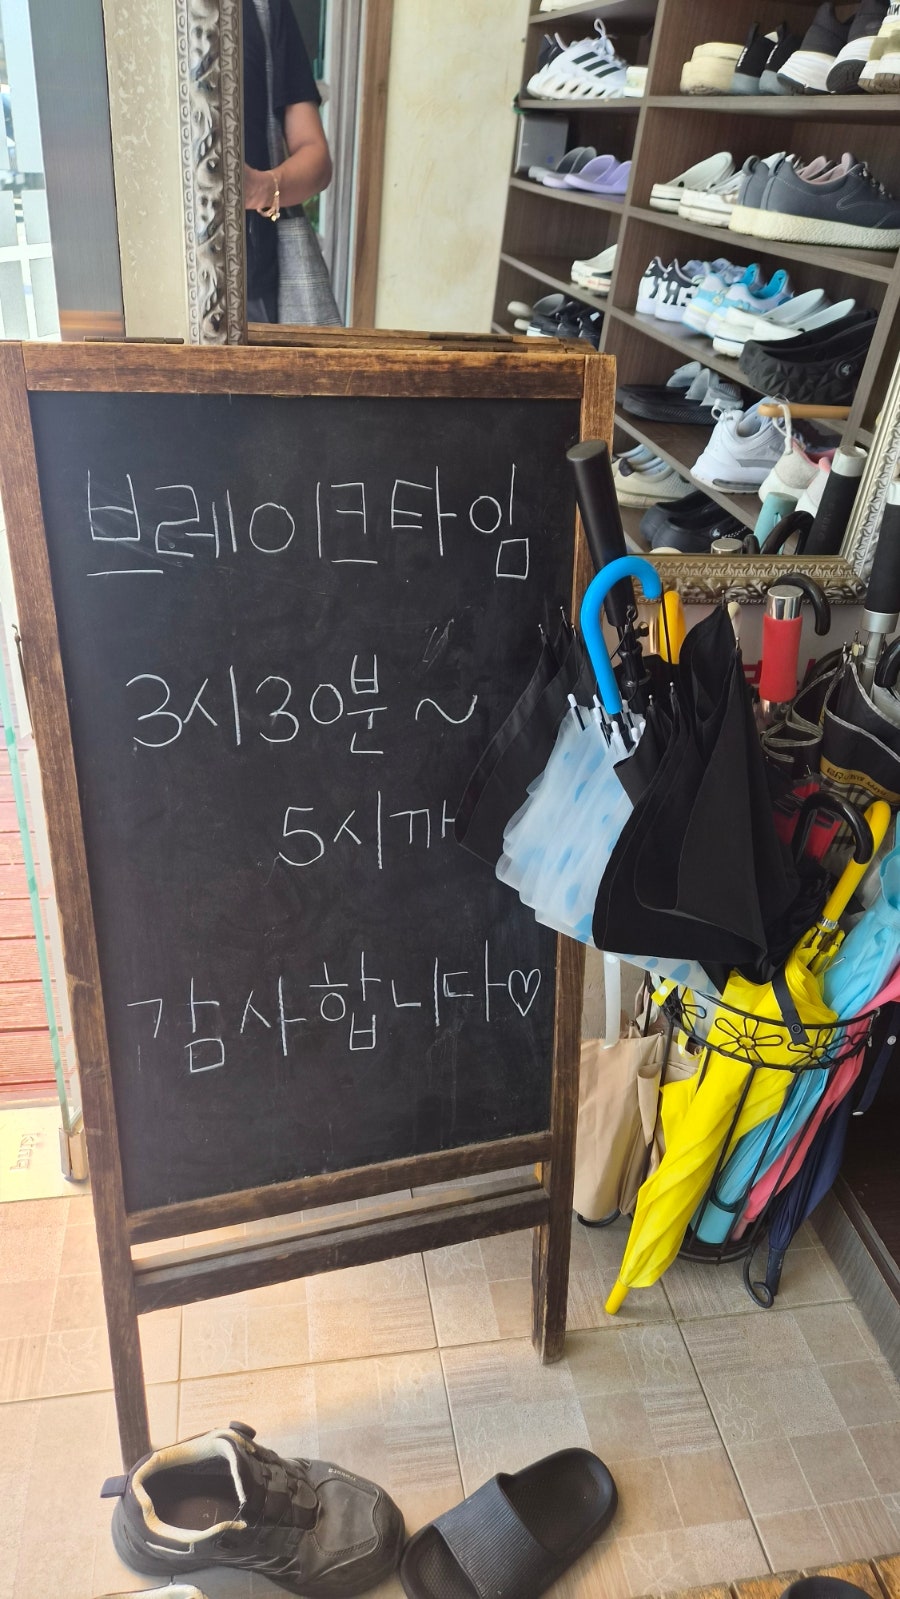 브레이크타임
3시30분~
5시까
감사합니다♡